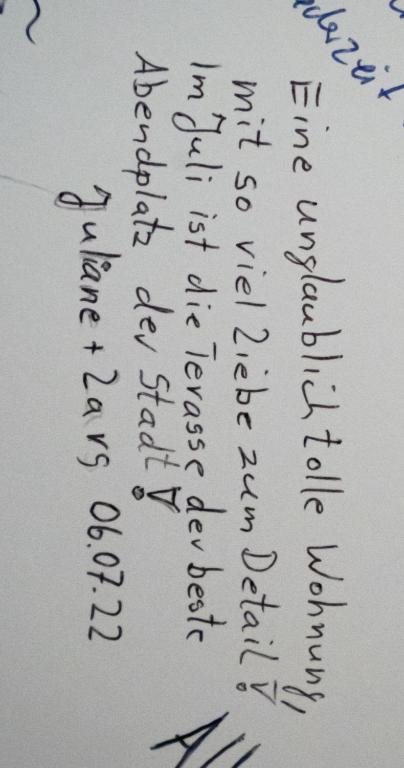 Eine unglaublich tolle Wohnung,
mit so viel Liebe zum Detail!
Im Juli ist die Terasse der beste
Abendplatz der Stadt!
Juliane + Lars 06.07.22